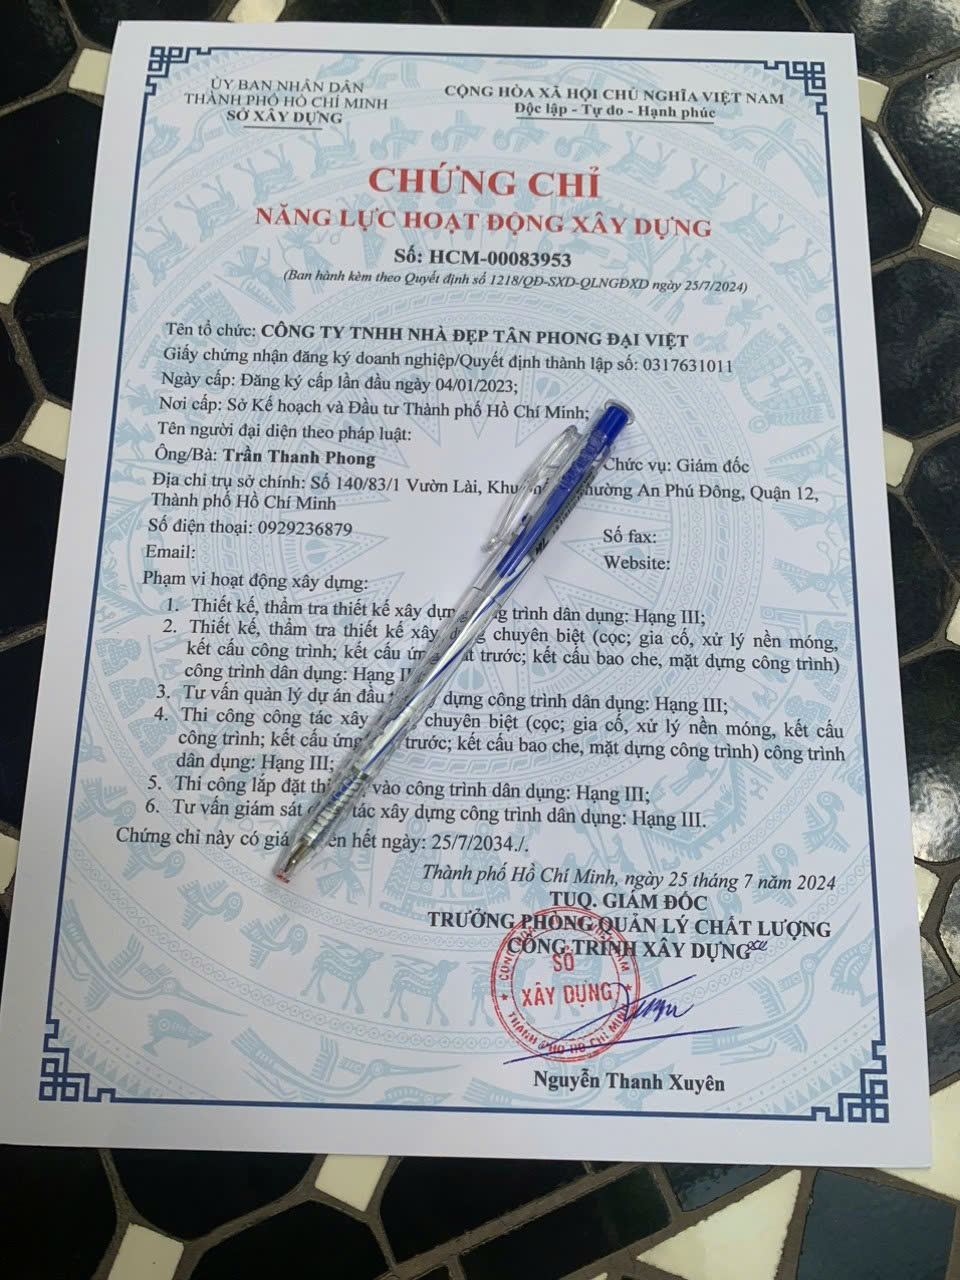 ỦY BAN NHÂN DÂN
THÀNH PHỐ HỒ CHÍ MINH
SỞ XÂY DỰNG
CỘNG HÒA XÃ HỘI CHỦ NGHĨA VIỆT NAM
Độc lập - Tự do - Hạnh phúc
CHỨNG CHỈ
NĂNG LỰC HOẠT ĐỘNG XÂY DỰNG
Số: HCM-00083953
(Ban hành kèm theo Quyết định số 1218/QĐ-SXD-QLNGĐXD ngày 25/7/2024)
Tên tổ chức: CÔNG TY TNHH NHÀ ĐẸP TÂN PHONG ĐẠI VIỆT
Giấy chứng nhận đăng ký doanh nghiệp/Quyết định thành lập số: 0317631011
Ngày cấp: Đăng ký cấp lần đầu ngày 04/01/2023;
Nơi cấp: Sở Kế hoạch và Đầu tư Thành phố Hồ Chí Minh;
Tên người đại diện theo pháp luật:
Ông/Bà: Trần Thanh Phong Chức vụ: Giám đốc
Địa chỉ trụ sở chính: Số 140/83/1 Vườn Lài, Khu phường An Phú Đông, Quận 12,
Thành phố Hồ Chí Minh
Số điện thoại: 0929236879 Số fax:
Email: Website:
Phạm vi hoạt động xây dựng:
1. Thiết kế, thẩm tra thiết kế xây dựng công trình dân dụng: Hạng III;
2. Thiết kế, thẩm tra thiết kế xây dựng chuyên biệt (cọc; gia cố, xử lý nền móng,
kết cấu công trình; kết cấu ứng suất trước; kết cấu bao che, mặt dựng công trình)
công trình dân dụng: Hạng
3. Tư vấn quản lý dự án đầu dựng công trình dân dụng: Hạng III;
4. Thi công công tác xây chuyên biệt (cọc; gia cố, xử lý nền móng, kết cấu
công trình; kết cấu ứng trước; kết cấu bao che, mặt dựng công trình) công trình
dân dụng: Hạng III;
5. Thi công lắp đặt vào công trình dân dụng: Hạng III;
6. Tư vấn giám sát công tác xây dựng công trình dân dụng: Hạng III.
Chứng chỉ này có giá đến hết ngày: 25/7/2034./.
Thành phố Hồ Chí Minh, ngày 25 tháng 7 năm 2024
TUQ. GIÁM ĐỐC
TRƯỞNG PHÒNG QUẢN LÝ CHẤT LƯỢNG
CÔNG TRÌNH XÂY DỰNG
SỞ
XÂY DỰNG
THÀNH PHỐ HỒ CHÍ MINH
Nguyễn Thanh Xuyên